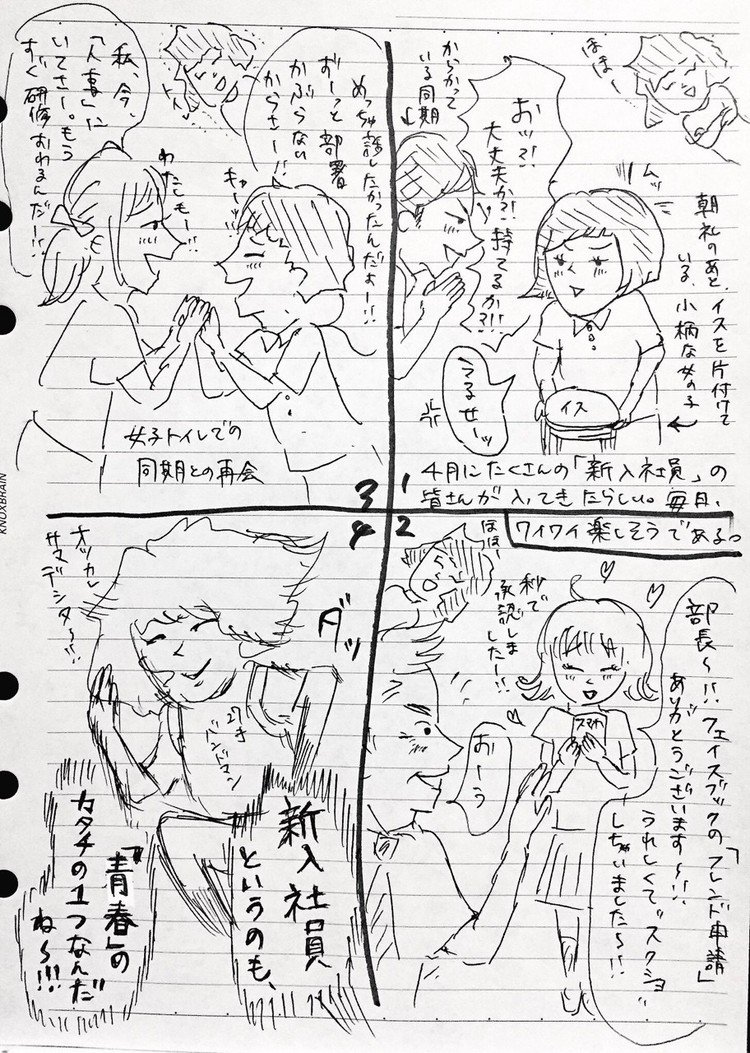 ほほー
からかって
いる同期
おッ?!
大丈夫か?!
持てるか?!!
ムッ
朝礼のあと、イスを片付けて
いる、小柄な女の子
うるせーッ
イス
4月にたくさんの「新入社員」の
皆さんが入ってきたらしい。毎日、
ワイワイ楽しそうである。
1
2
ほほー
部長〜!!フェイスブックの「フレンド申請」
ありがとうございます〜!!
うれしくて"スクショ"
しちゃいました〜!!
秒で
承認しま
したー!!
スマホ
おーう
3
めっちゃ話したかったんだよー!!
ずーっと部署
かぶらない
からさー!!
キャーッ
トイレ
私、今、
「人事」に
いてさー。もう
すぐ研修おわるんだー!!
わたしもー!!
女子トイレでの
同期との再会
4
オツカレ
サマデシタ〜!!
ダッ
27才
バンドマン
新入社員
というのも、
「青春」の
カタチの1つなんだ
ね〜!!!
KNOXBRAIN